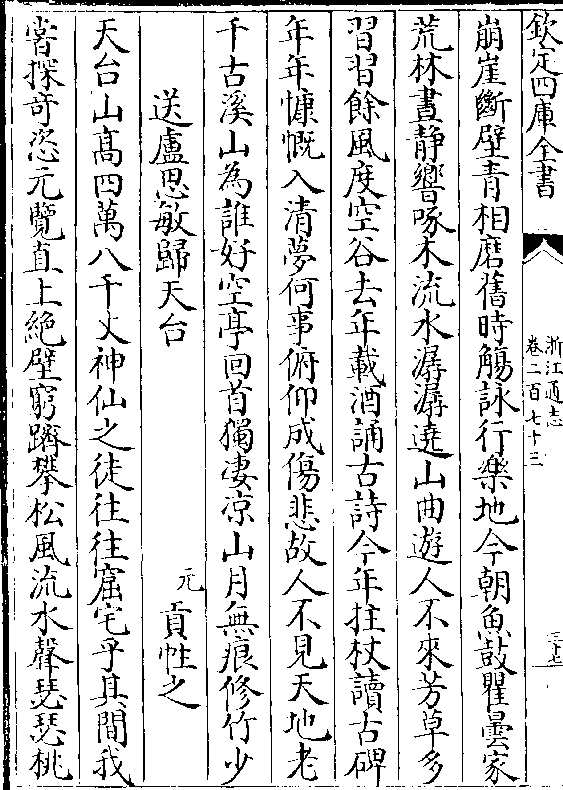 欽定四庫全書
浙江通志
卷二百七十三
三十七
崩崖斷壁青相磨舊時觴詠行樂地今朝魚鼓瞿曇家
荒林晝静響啄木流水潺潺遶山曲遊人不來芳草多
習習餘風度空谷去年載酒誦古詩今年拄杖讀古碑
年年慷慨入清夢何事俯仰成傷悲故人不見天地老
千古溪山為誰好空亭回首獨凄凉山月無痕修竹少
送盧思敏歸天台
元
貢性之
天台山高四萬八千丈神仙之徒往往窟宅乎其間我
甞探奇恣元覽直上絶壁窮躋攀松風流水聲瑟瑟桃